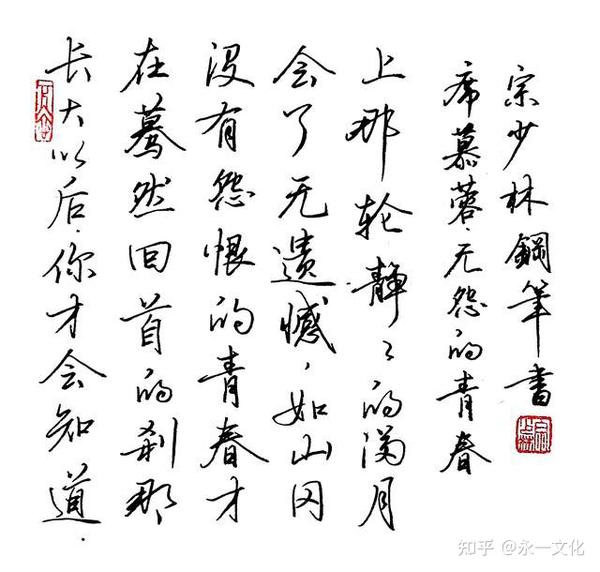 长大以后,你才会知道,
在蓦然回首的刹那
没有怨恨的青春才
会了无遗憾,如山冈
上那轮静々的满月
席慕蓉·无怨的青春
宗少林鋼筆書
知乎 @永一文化